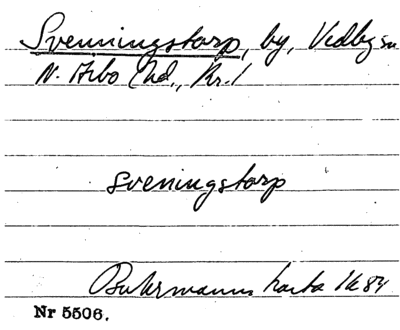 Svenningstorp, by, Vedby sn
N. Åsbo hd., Kr. l
Sveningstorp
Buhrmanns karta 1684
Nr 5506.